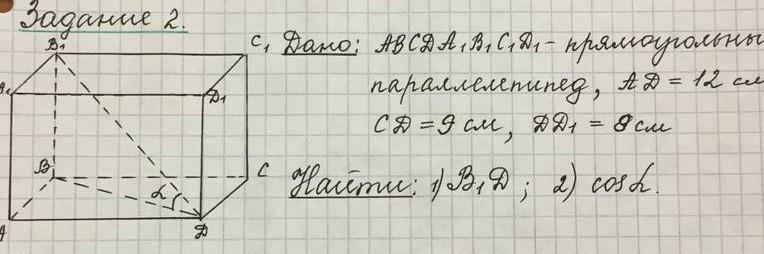 Задание 2.
B₁
C₁ Дано: ABCDA₁B₁C₁D₁ - прямоугольны
A₁
D₁
параллелепипед, AD = 12 см
CD = 9 см, DD₁ = 8 см
B
C
Найти: 1) B₁D ; 2) cos α.
α
A
D